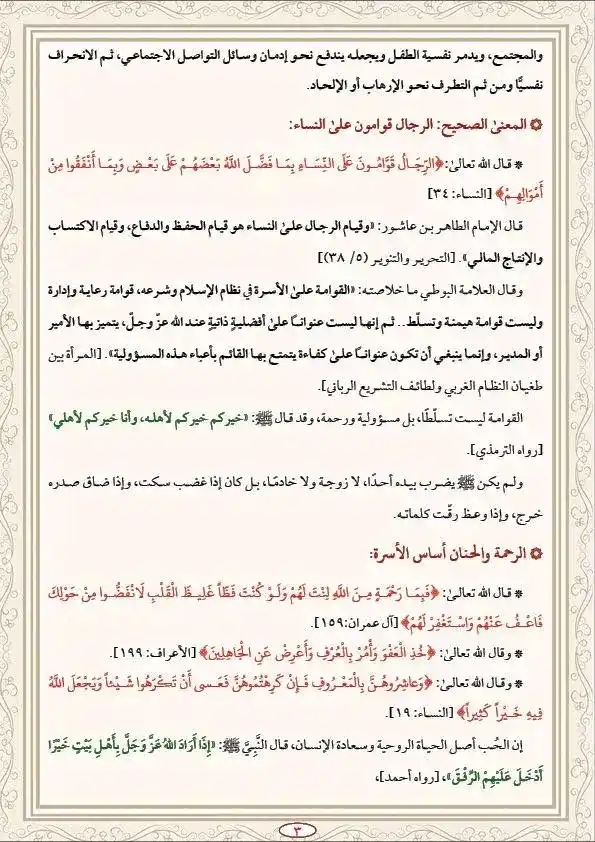 والمجتمع، ويدمر نفسية الطفل ويجعله يندفع نحو إدمان وسائل التواصل الاجتماعي، ثم الانحراف
نفسيًّا ومن ثم التطرف نحو الإرهاب أو الإلحاد.
۞ المعنى الصحيح: الرجال قوامون على النساء:
* قال الله تعالى: ﴿الرِّجَالُ قَوَّامُونَ عَلَى النِّسَاءِ بِمَا فَضَّلَ اللَّهُ بَعْضَهُمْ عَلَى بَعْضٍ وَبِمَا أَنْفَقُوا مِنْ
أَمْوَالِهِمْ﴾ [النساء: ٣٤]
قال الإمام الطاهر بن عاشور: «وقيام الرجال على النساء هو قيام الحفظ والدفاع، وقيام الاكتساب
والإنتاج المالي». [التحرير والتنوير (٥/ ٣٨)]
وقال العلامة البوطي ما خلاصته: «القوامة على الأسرة في نظام الإسلام وشرعه، قوامة رعاية وإدارة
وليست قوامة هيمنة وتسلّط.. ثم إنها ليست عنوانًا على أفضليةٍ ذاتيةٍ عند الله عزّ وجلّ، يتميز بها الأمير
أو المدير، وإنما ينبغي أن تكون عنوانًا على كفاءة يتمتع بها القائم بأعباء هذه المسؤولية». [المرأة بين
طغيان النظام الغربي ولطائف التشريع الرباني].
القوامة ليست تسلّطًا، بل مسؤولية ورحمة، وقد قال ﷺ: «خيركم خيركم لأهله، وأنا خيركم لأهلي»
[رواه الترمذي].
ولم يكن ﷺ يضرب بيده أحدًا، لا زوجة ولا خادمًا، بل كان إذا غضب سكت، وإذا ضاق صدره
خرج، وإذا وعظ رقّت كلماته.
۞ الرحمة والحنان أساس الأسرة:
* قال الله تعالى: ﴿فَبِمَا رَحْمَةٍ مِنَ اللَّهِ لِنْتَ لَهُمْ وَلَوْ كُنْتَ فَظًّا غَلِيظَ الْقَلْبِ لَانْفَضُّوا مِنْ حَوْلِكَ
فَاعْفُ عَنْهُمْ وَاسْتَغْفِرْ لَهُمْ﴾ [آل عمران:١٥٩].
* وقال الله تعالى: ﴿خُذِ الْعَفْوَ وَأْمُرْ بِالْعُرْفِ وَأَعْرِضْ عَنِ الْجَاهِلِينَ﴾ [الأعراف: ١٩٩].
* وقال الله تعالى: ﴿وَعَاشِرُوهُنَّ بِالْمَعْرُوفِ فَإِنْ كَرِهْتُمُوهُنَّ فَعَسَى أَنْ تَكْرَهُوا شَيْئًا وَيَجْعَلَ اللَّهُ
فِيهِ خَيْرًا كَثِيرًا﴾ [النساء: ١٩].
إن الحُب أصل الحياة الروحية وسعادة الإنسان، قال النَّبِيَّ ﷺ: «إِذَا أَرَادَ اللهُ عَزَّ وَجَلَّ بِأَهْلِ بَيْتٍ خَيْرًا
أَدْخَلَ عَلَيْهِمْ الرِّفْقَ»، [رواه أحمد]،
٣